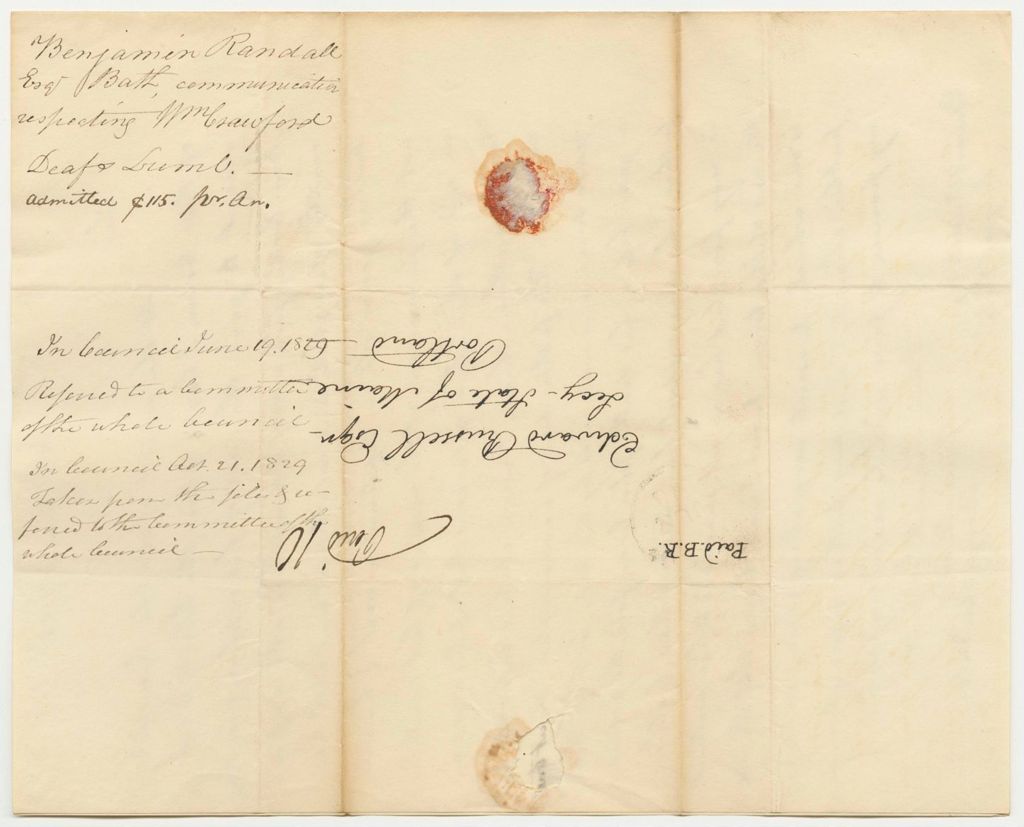 Benjamin Randall
Esqr Bath, communication
respecting Wm Crawford
Deaf & Dumb. —
admitted $115. pr. An.
In Council June 19. 1829
Referred to a Committee
of the whole Council
In Council Oct. 21. 1829
Taken from the files & re-
ferred to the Committee of the
whole Council —
Paid 10
Paid. B. R.
Edward Russell Esqr.
Secy. State of Maine
Portland